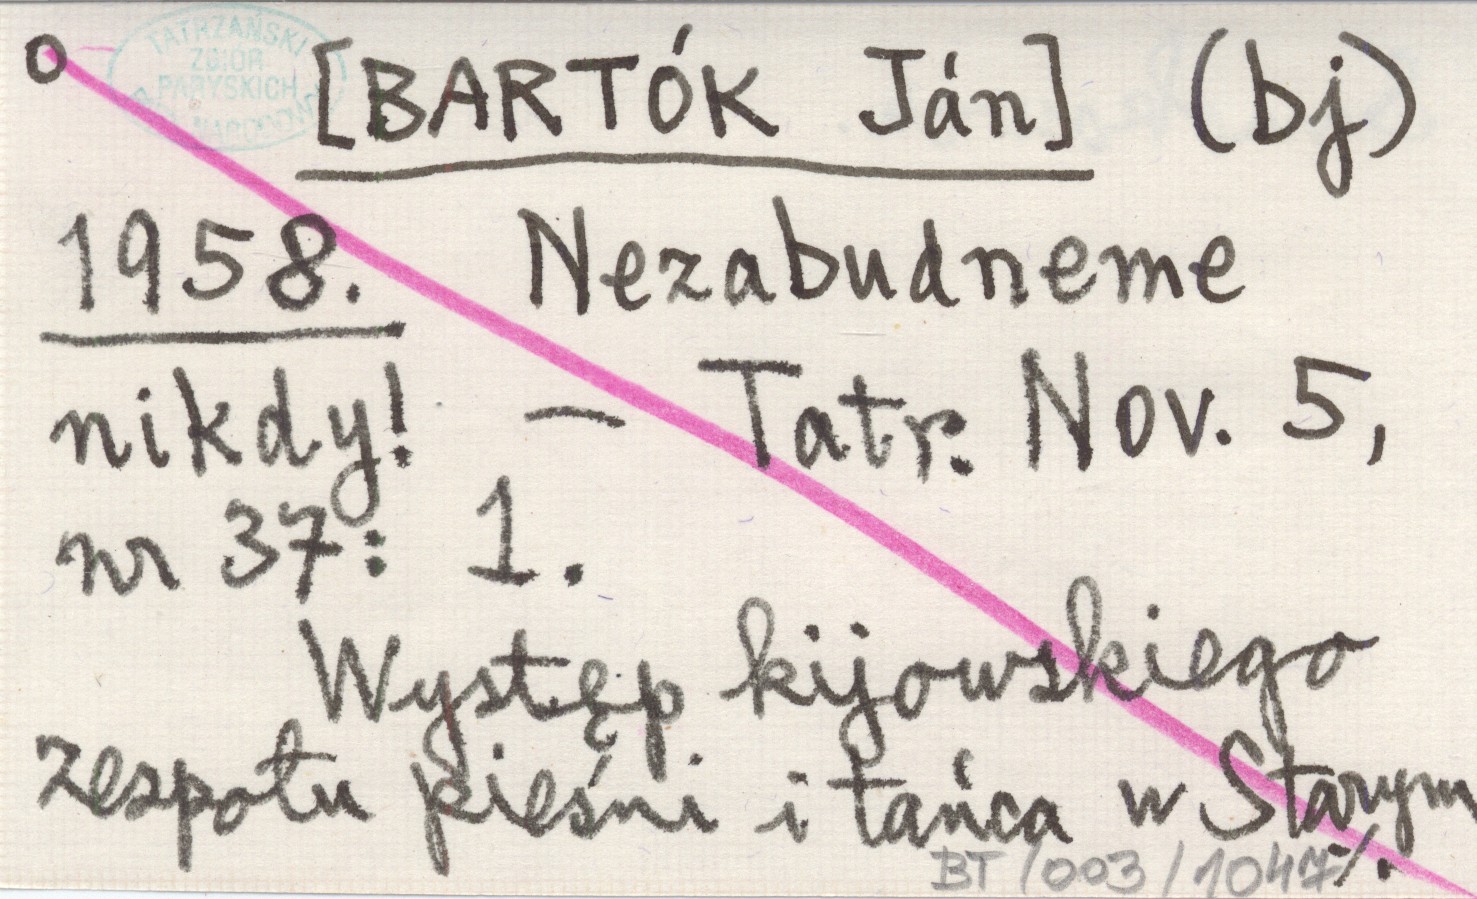 o
TATRZAŃSKI
ZBIÓR
PARYSKICH
[BARTÓK Ján] (bj)
1958. Nezabudneme
nikdy! – Tatr. Nov. 5,
nr 37: 1.
Występ kijowskiego
zespołu pieśni i tańca w Starym
./.
BT/003/1047